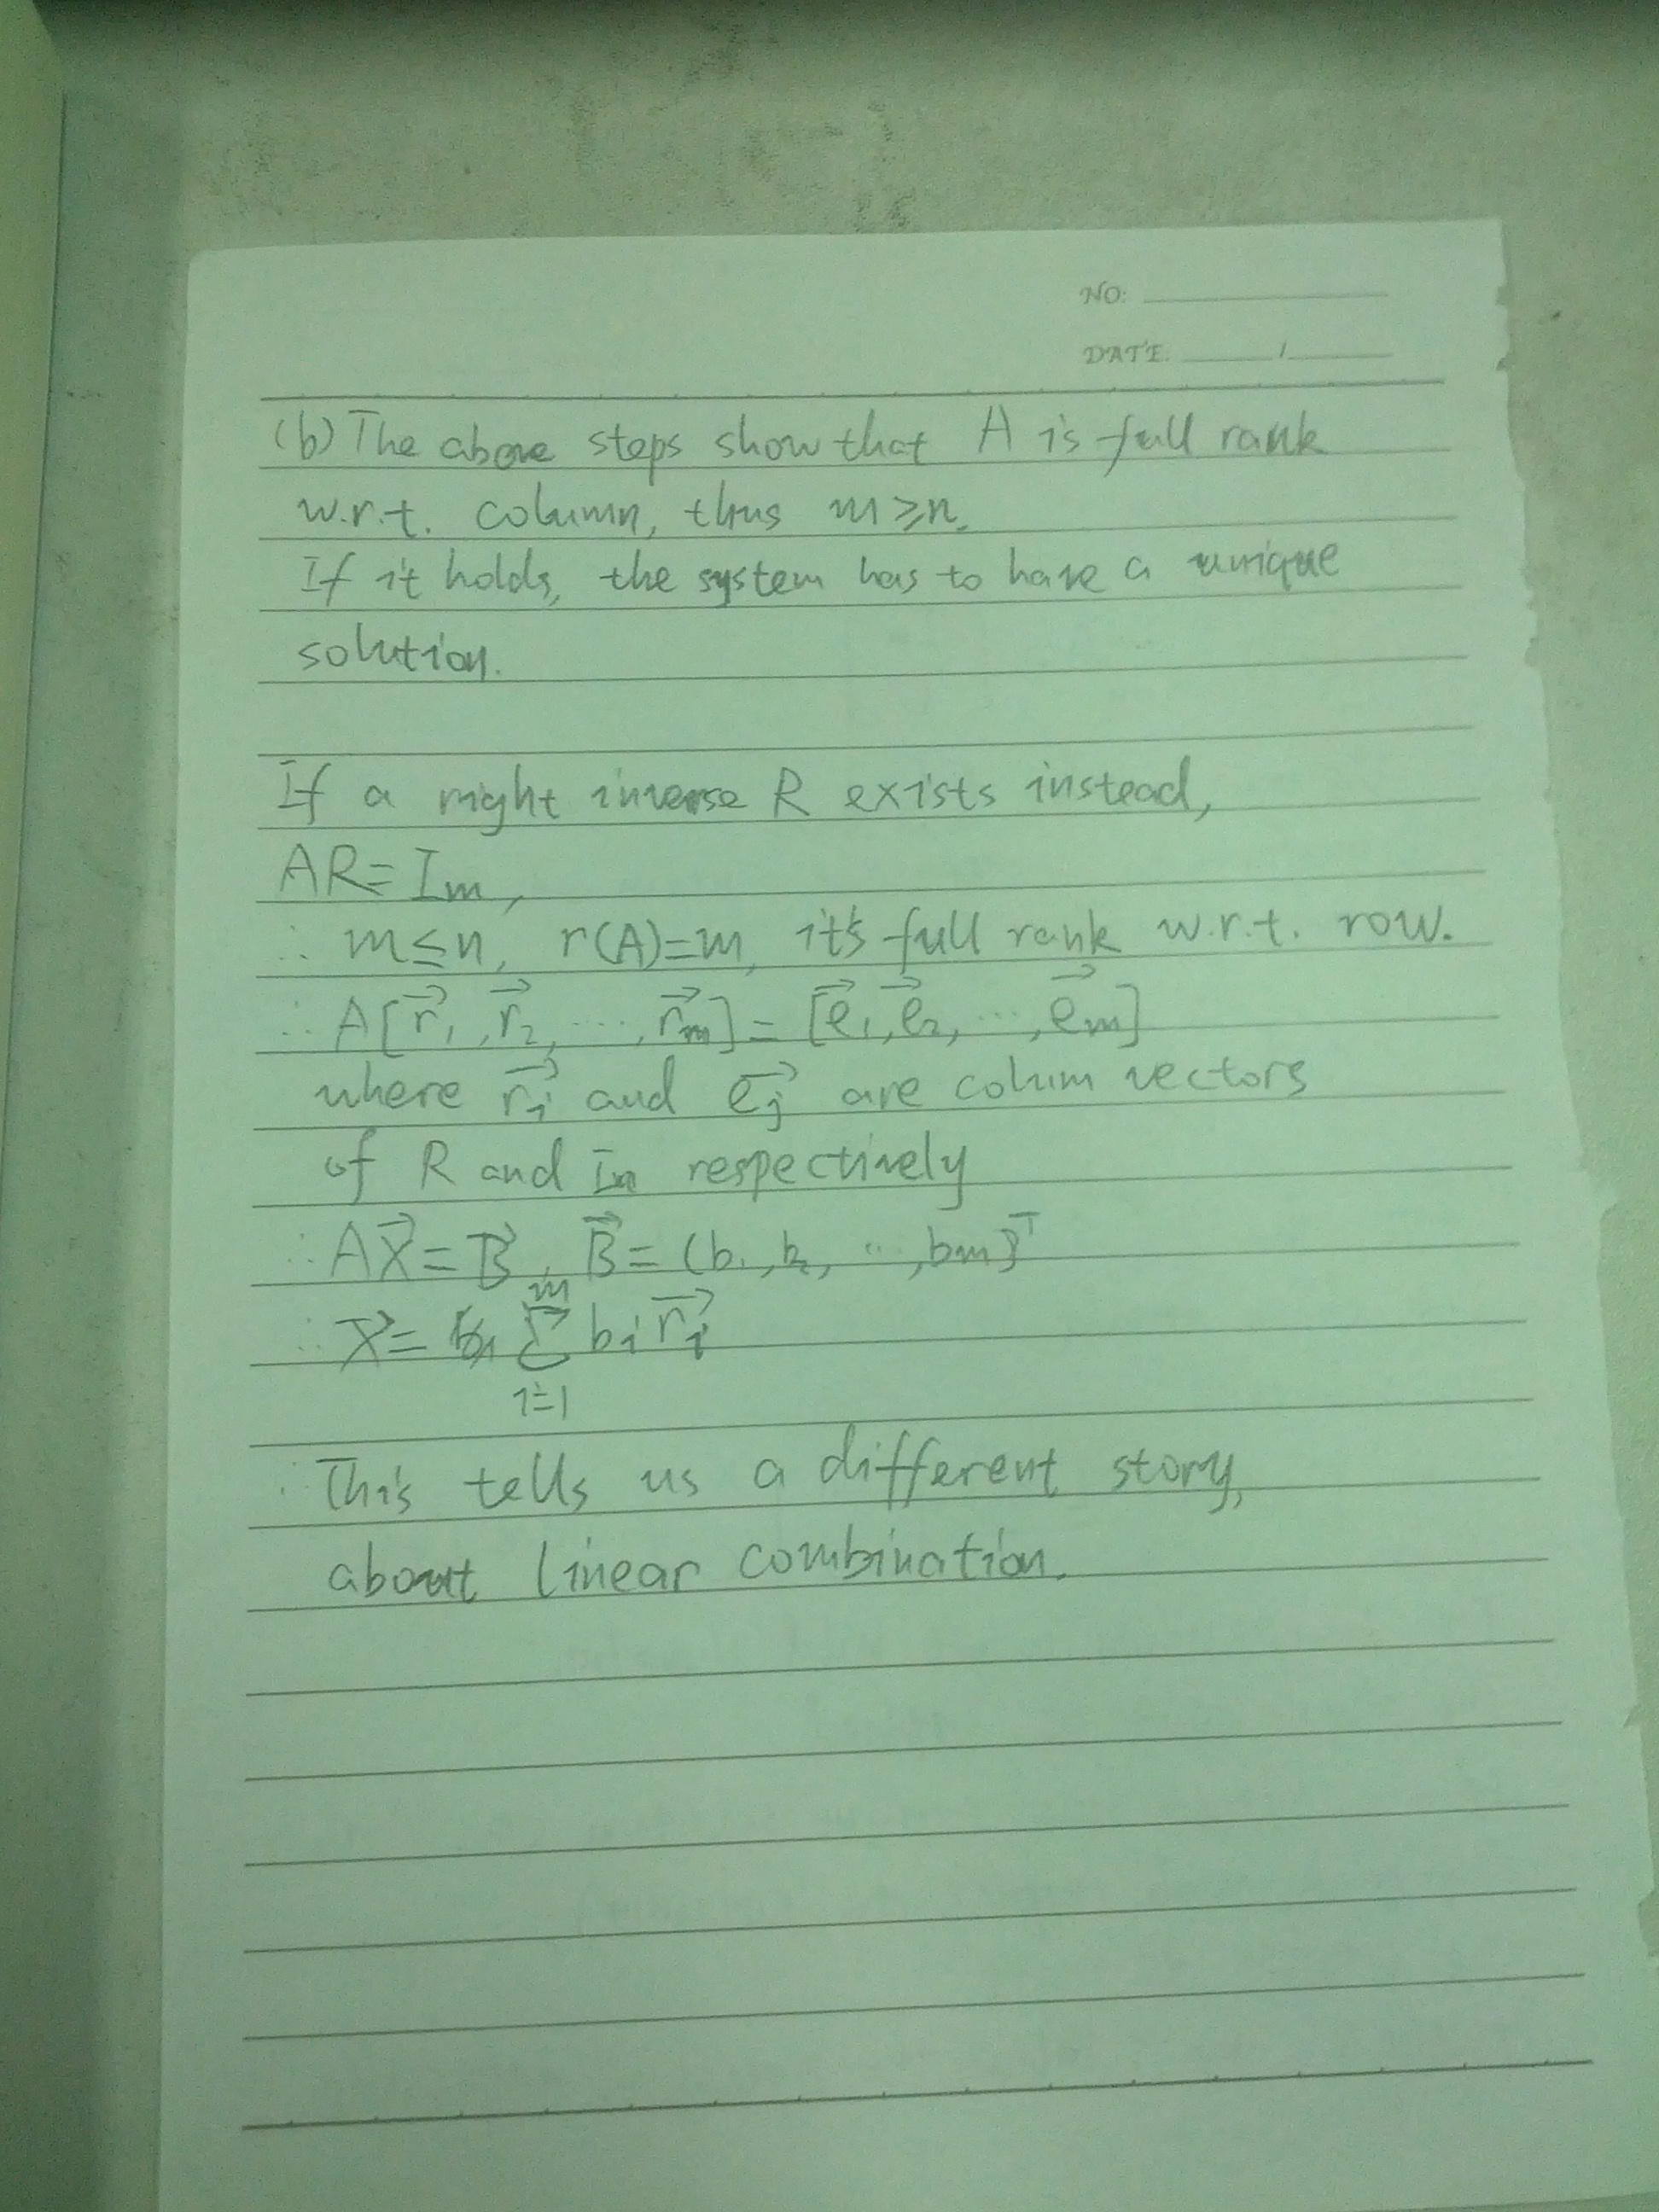 NO:
DATE. /
(b) The above steps show that A is full rank
w.r.t. column, thus m ≥ n.
If it holds, the system has to have a unique
solution.
If a right inverse R exists instead,
AR = Im,
∴ m ≤ n, r(A)=m, it's full rank w.r.t. row.
∴ A[r⃗₁, r⃗₂, ..., r⃗m] = [e⃗₁, e⃗₂, ..., e⃗m]
where r⃗i and e⃗j are colum vectors
of R and Im respectively
∴ AX⃗ = B⃗, B⃗ = (b₁, b₂, ..., bm)ᵀ
∴ X⃗ = m∑i=1 bi r⃗i
∴ This tells us a different story,
about linear combination.